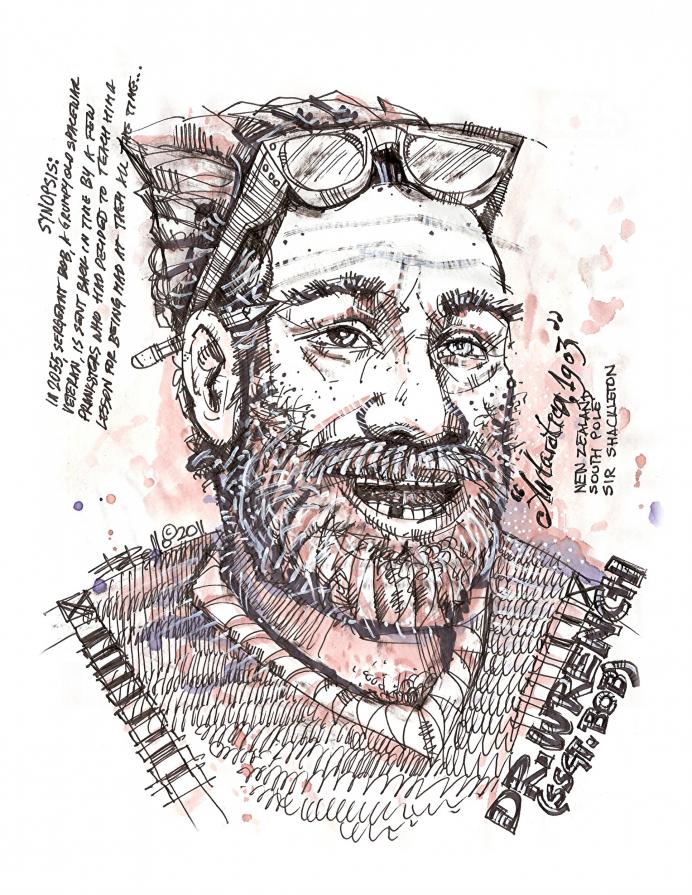 SYNOPSIS:
IN 2055, SERGEANT BOB, A GRUMPY OLD SPACEWAR
VETERAN IS SENT BACK IN TIME BY A FEW
PRANKSTERS WHO HAD DECIDED TO TEACH HIM A
LESSON FOR BEING MAD AT THEM ALL THE TIME...
"Antarctica, 1903"
NEW ZEALAND
SOUTH POLE
SIR SHACKLETON
©2011
DR. WRENCH
(SSGT. BOB)